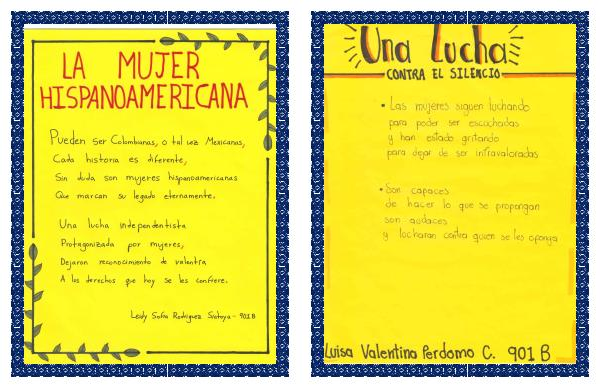 LA MUJER
HISPANOAMERICANA
Pueden ser Colombianas, o tal vez Mexicanas,
Cada historia es diferente,
Sin duda son mujeres hispanoamericanas
Que marcan su legado eternamente.
Una lucha independentista
Protagonizada por mujeres,
Dejaron reconocimiento de valentía
A los derechos que hoy se les confiere.
Leidy Sofia Rodriguez - 901B
Una Lucha
CONTRA EL SILENCIO
• Las mujeres siguen luchando
para poder ser escuchadas
y han estado gritando
para dejar de ser infravaloradas
• Son capaces
de hacer lo que se propongan
son audaces
y lucharan contra quien se les oponga
Luisa Valentina Perdomo C. 901 B